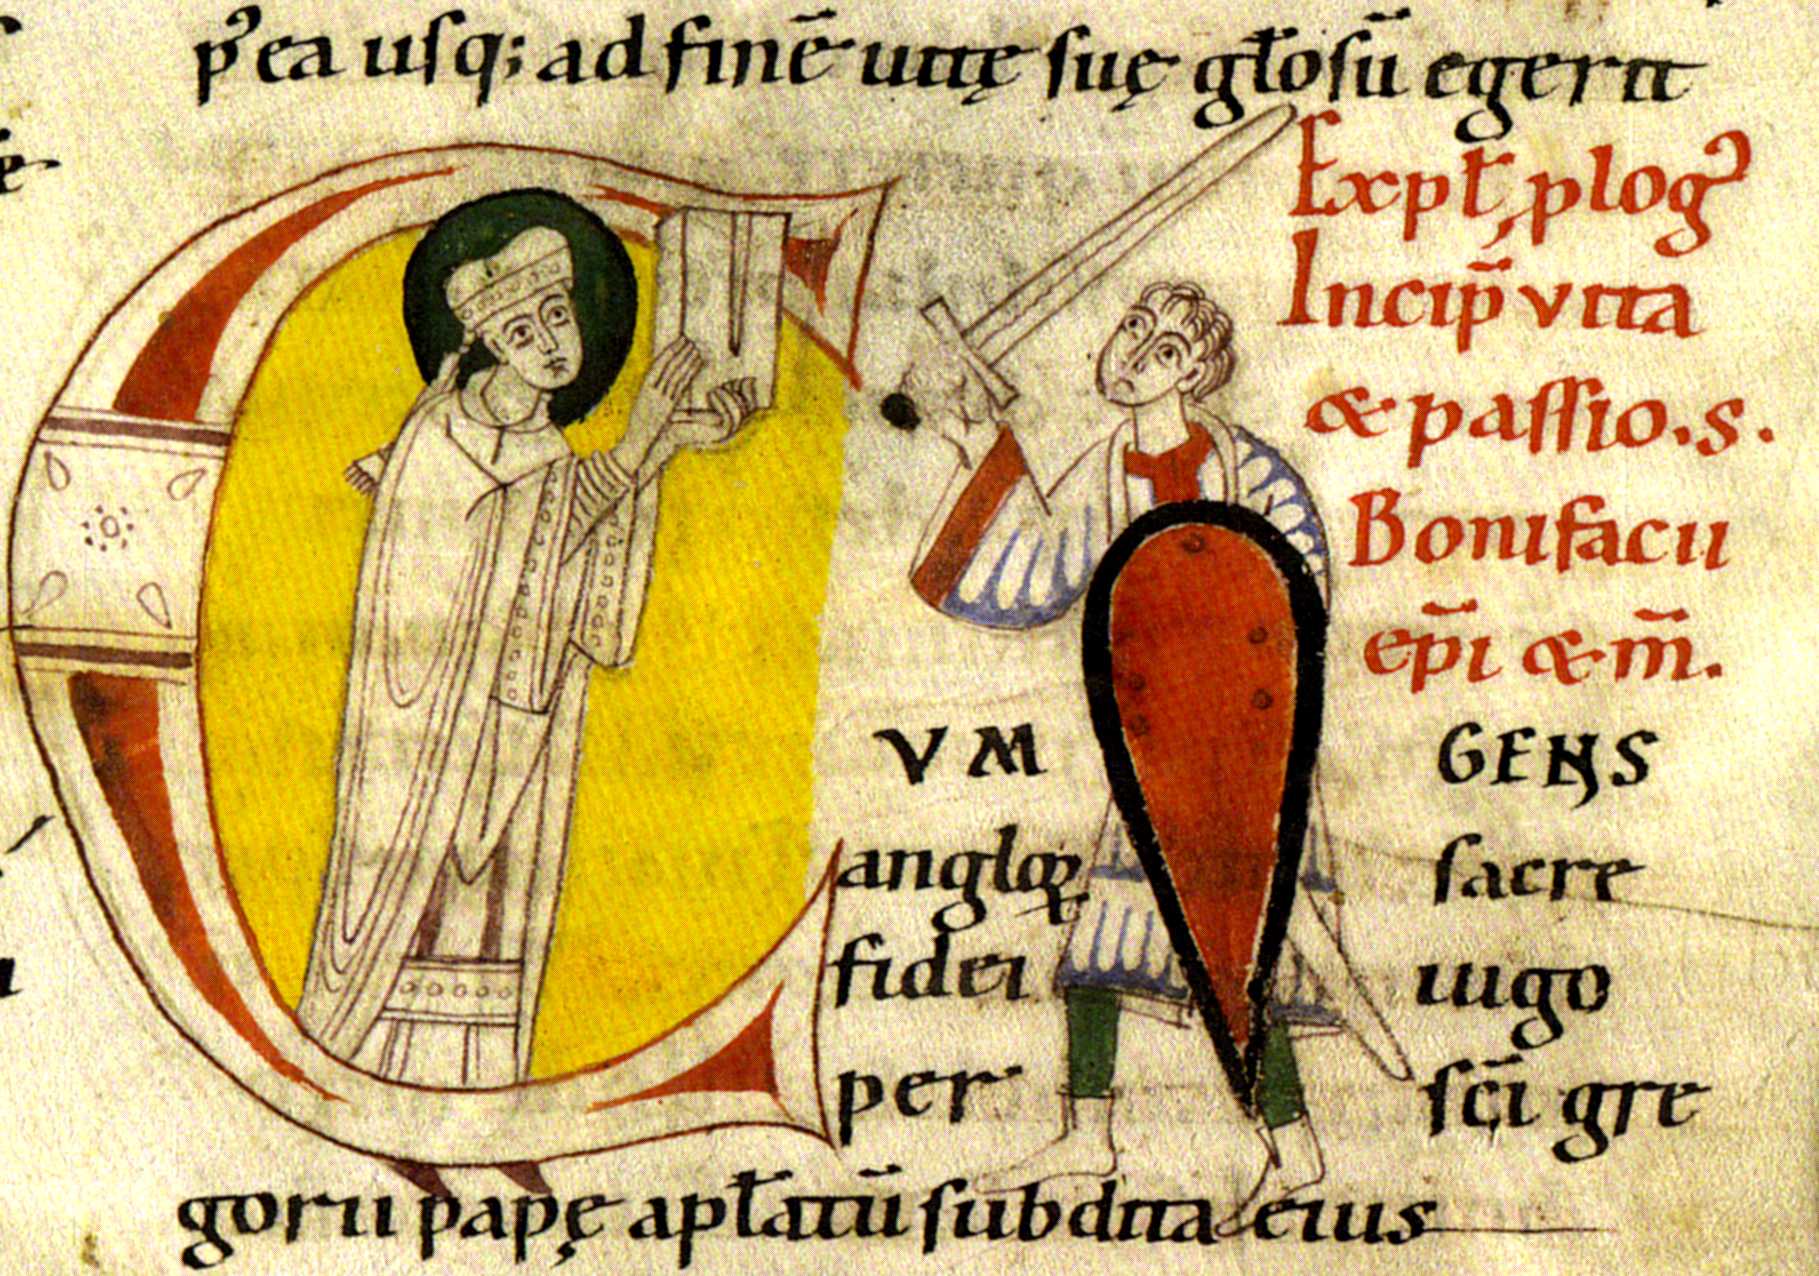 p᷒ ea usq; ad finē uitę suę gl̄osū egerit
Expl̄t plog᷒
Incip̄ vita
& passio. s.
Bonifacii
ep̄i & m̄.
C VM GENS
angloꝝ sacre
fidei iugo
per sc̄i gre
gorii papę apl̄atū subdita eius